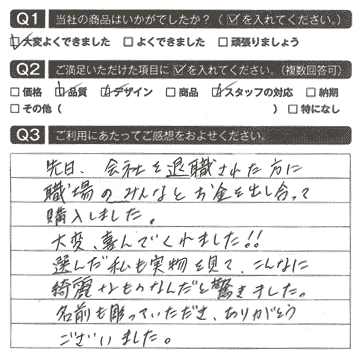 Q1 当社の商品はいかがでしたか？（☑を入れてください。）
☑大変よくできました □よくできました □頑張りましょう
Q2 ご満足いただけた項目に☑を入れてください。（複数回答可）
□価格 ☑品質 ☑デザイン □商品 ☑スタッフの対応 □納期
□その他（ ）□特になし
Q3 ご利用にあたってご感想をおよせください。
先日、会社を退職された方に
職場のみんなとお金を出し合って
購入しました。
大変、喜んでくれました!!
選んだ私も実物を見て、こんなに
綺麗なものなんだと驚きました。
名前も彫っていただき、ありがとう
ございました。